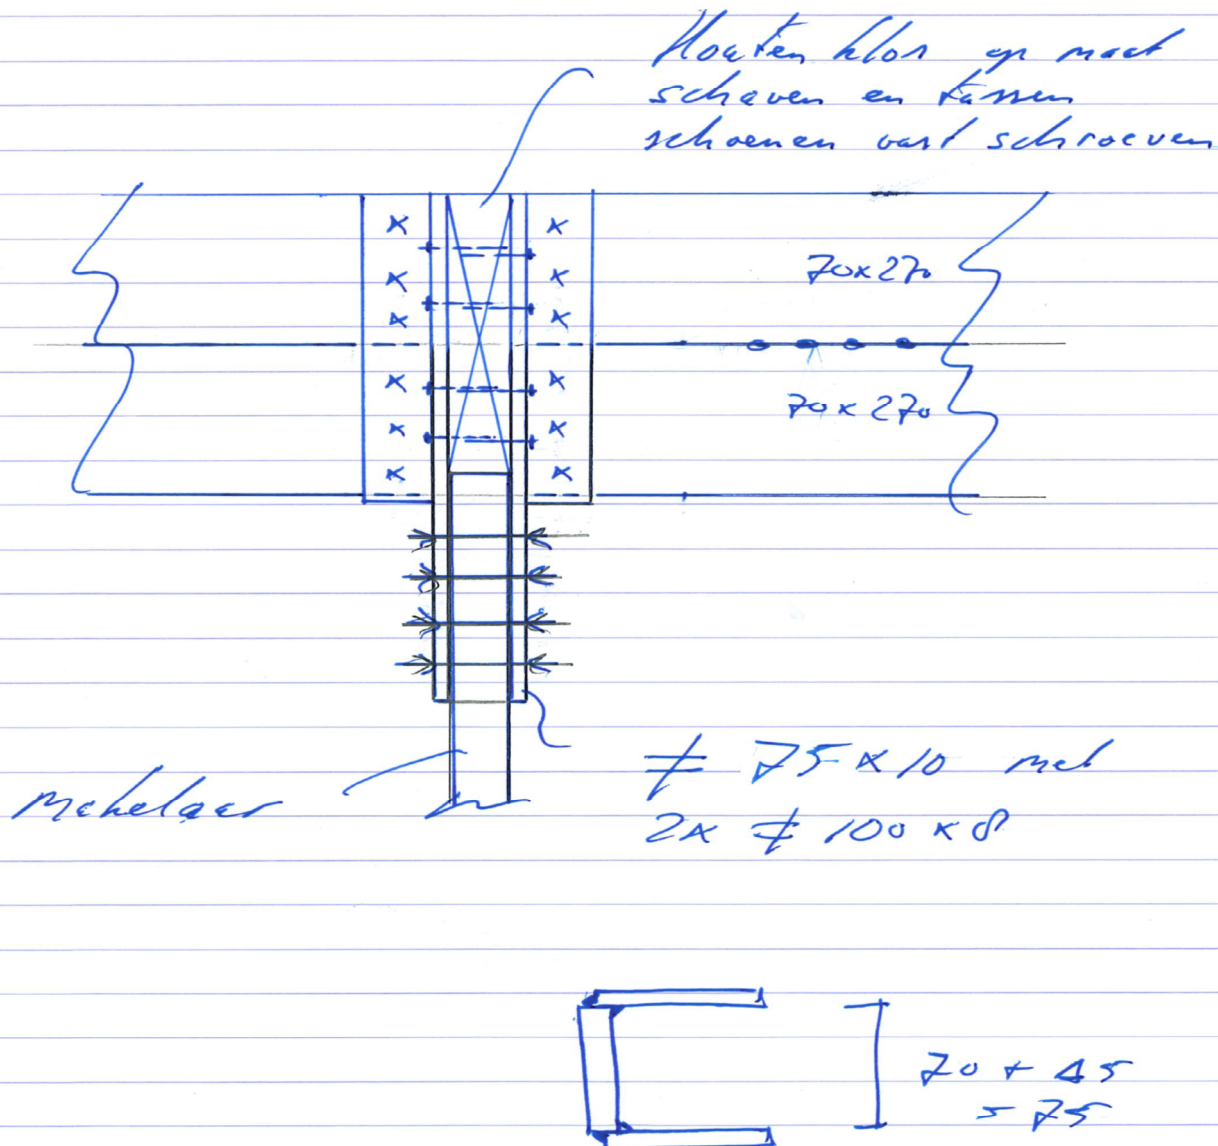 Houten klos op maat
schaven en tussen
schoenen vast schroeven
70x270
70x270
≠ 75 x 10 met
2x ≠ 100 x 8
makelaar
70 + 45
= 75